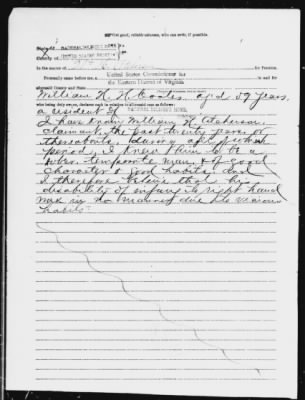 good, reliable witness, who can write, if possible.
State of NATIONAL SOLDIER'S HOME
County of
In the matter of for Pension
Personally came before me, a United States Commissioner for
aforesaid County and State the Eastern District of Virginia
William H. H. Coates, aged 59 years,
who being duly sworn, declares in relation to aforesaid case as follows:
a resident of NATIONAL SOLDIER'S HOME,
I have known William H.
claimant the past twenty years or
thereabouts, during all of which
period, I knew him to be a
sober, temperate man, & of good
character & good habits, and
I therefore believe that his
disability of injury to right hand
was in no manner due to vicious
habits